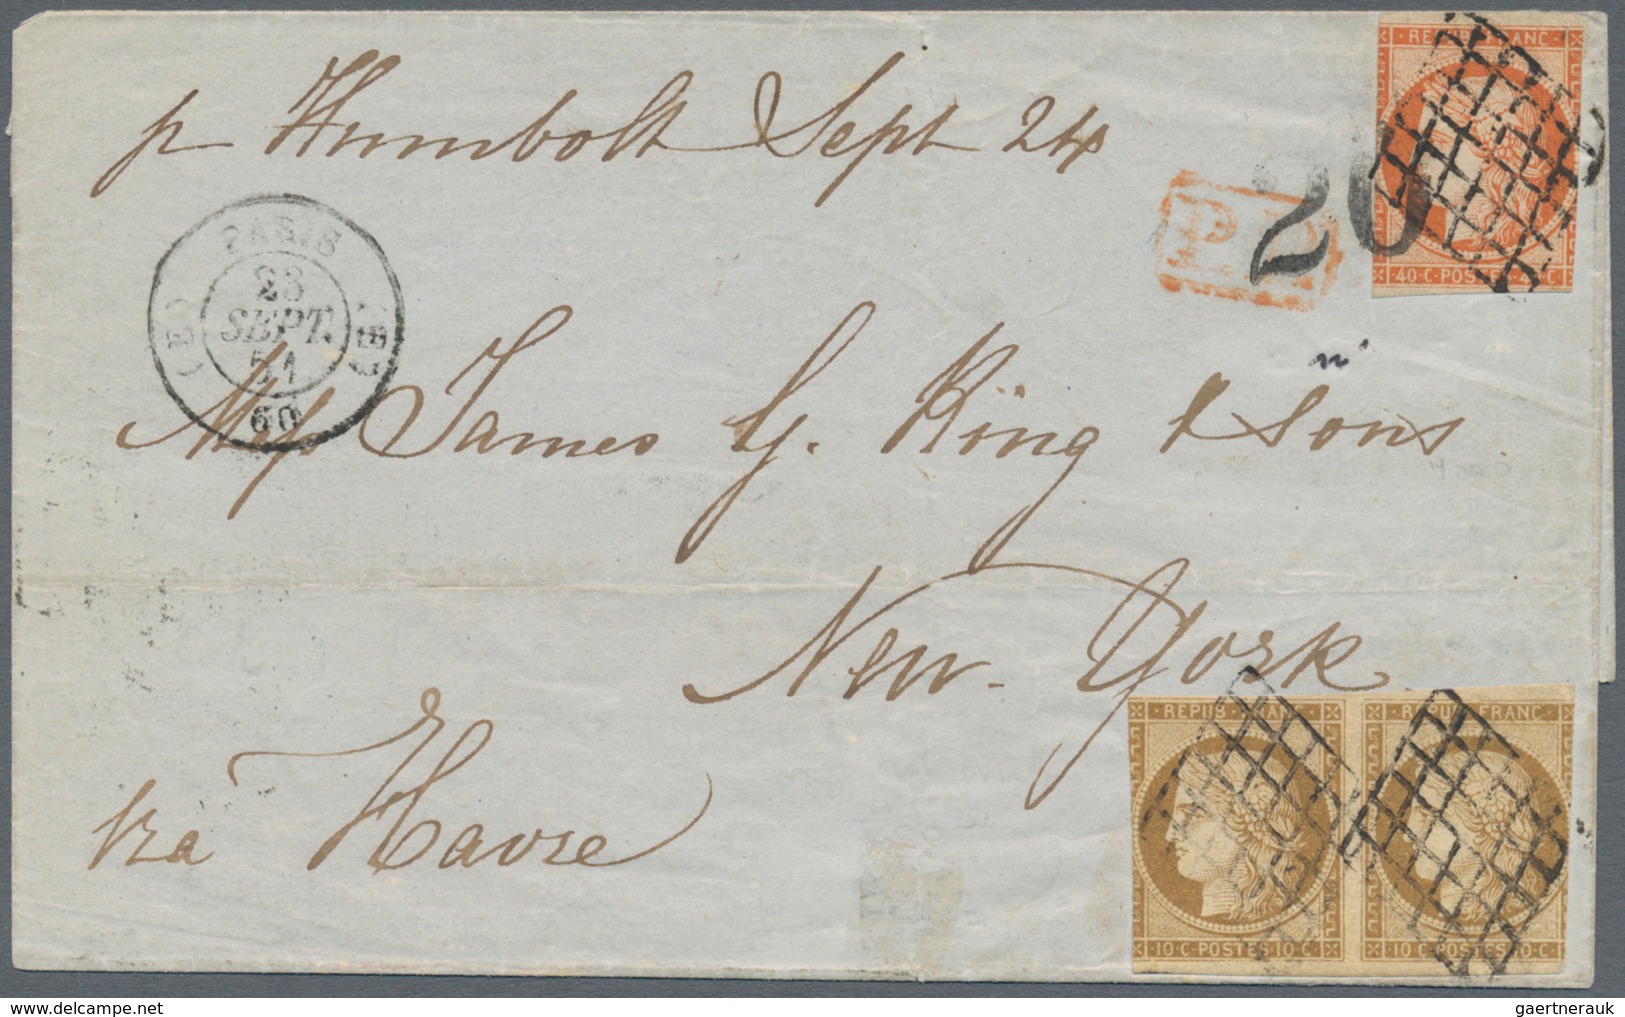 p Humbolt Sept 24
REPUB FRANC
40·C·POSTES·40·C
20
P.
PARIS
(E)
23
SEPT.
51
(E)
60
Mess James G. King & Sons
New-York
via Havre
REPUB FRANC
10·C·POSTES·10·C
REPUB FRANC
10·C·POSTES·10·C
gaertnerauk @ delcampe.net